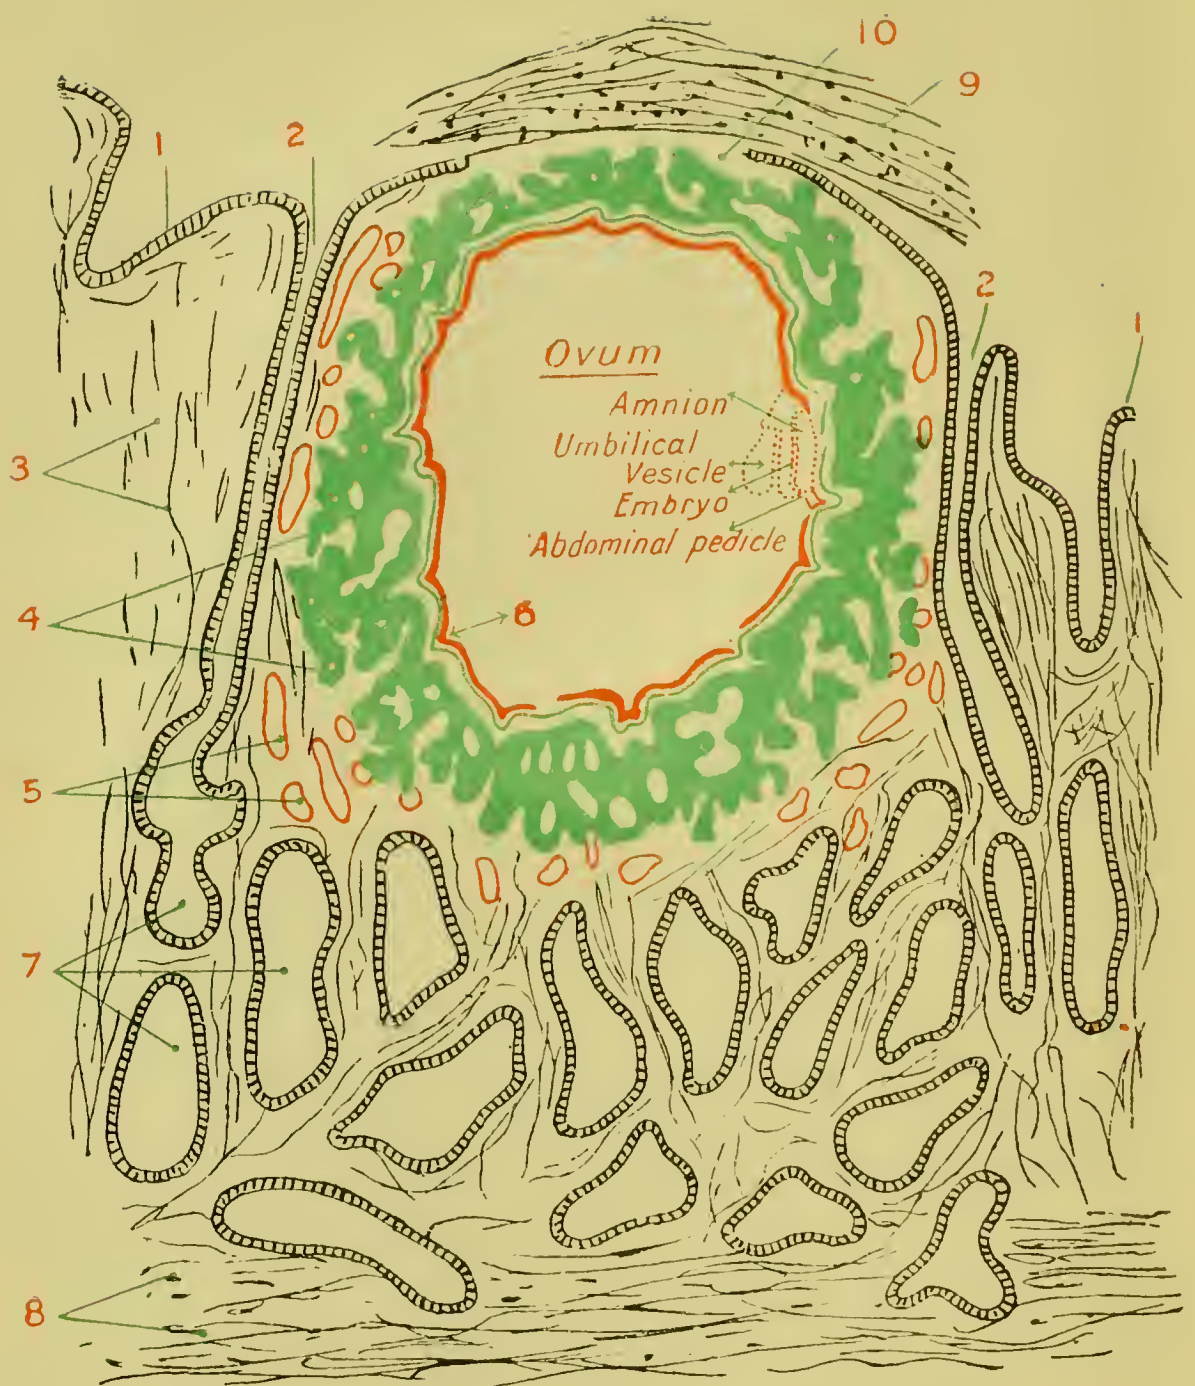 10
9
1
2
2
1
Ovum
Amnion
Umbilical
Vesicle
Embryo
Abdominal pedicle
3
4
6
5
7
8